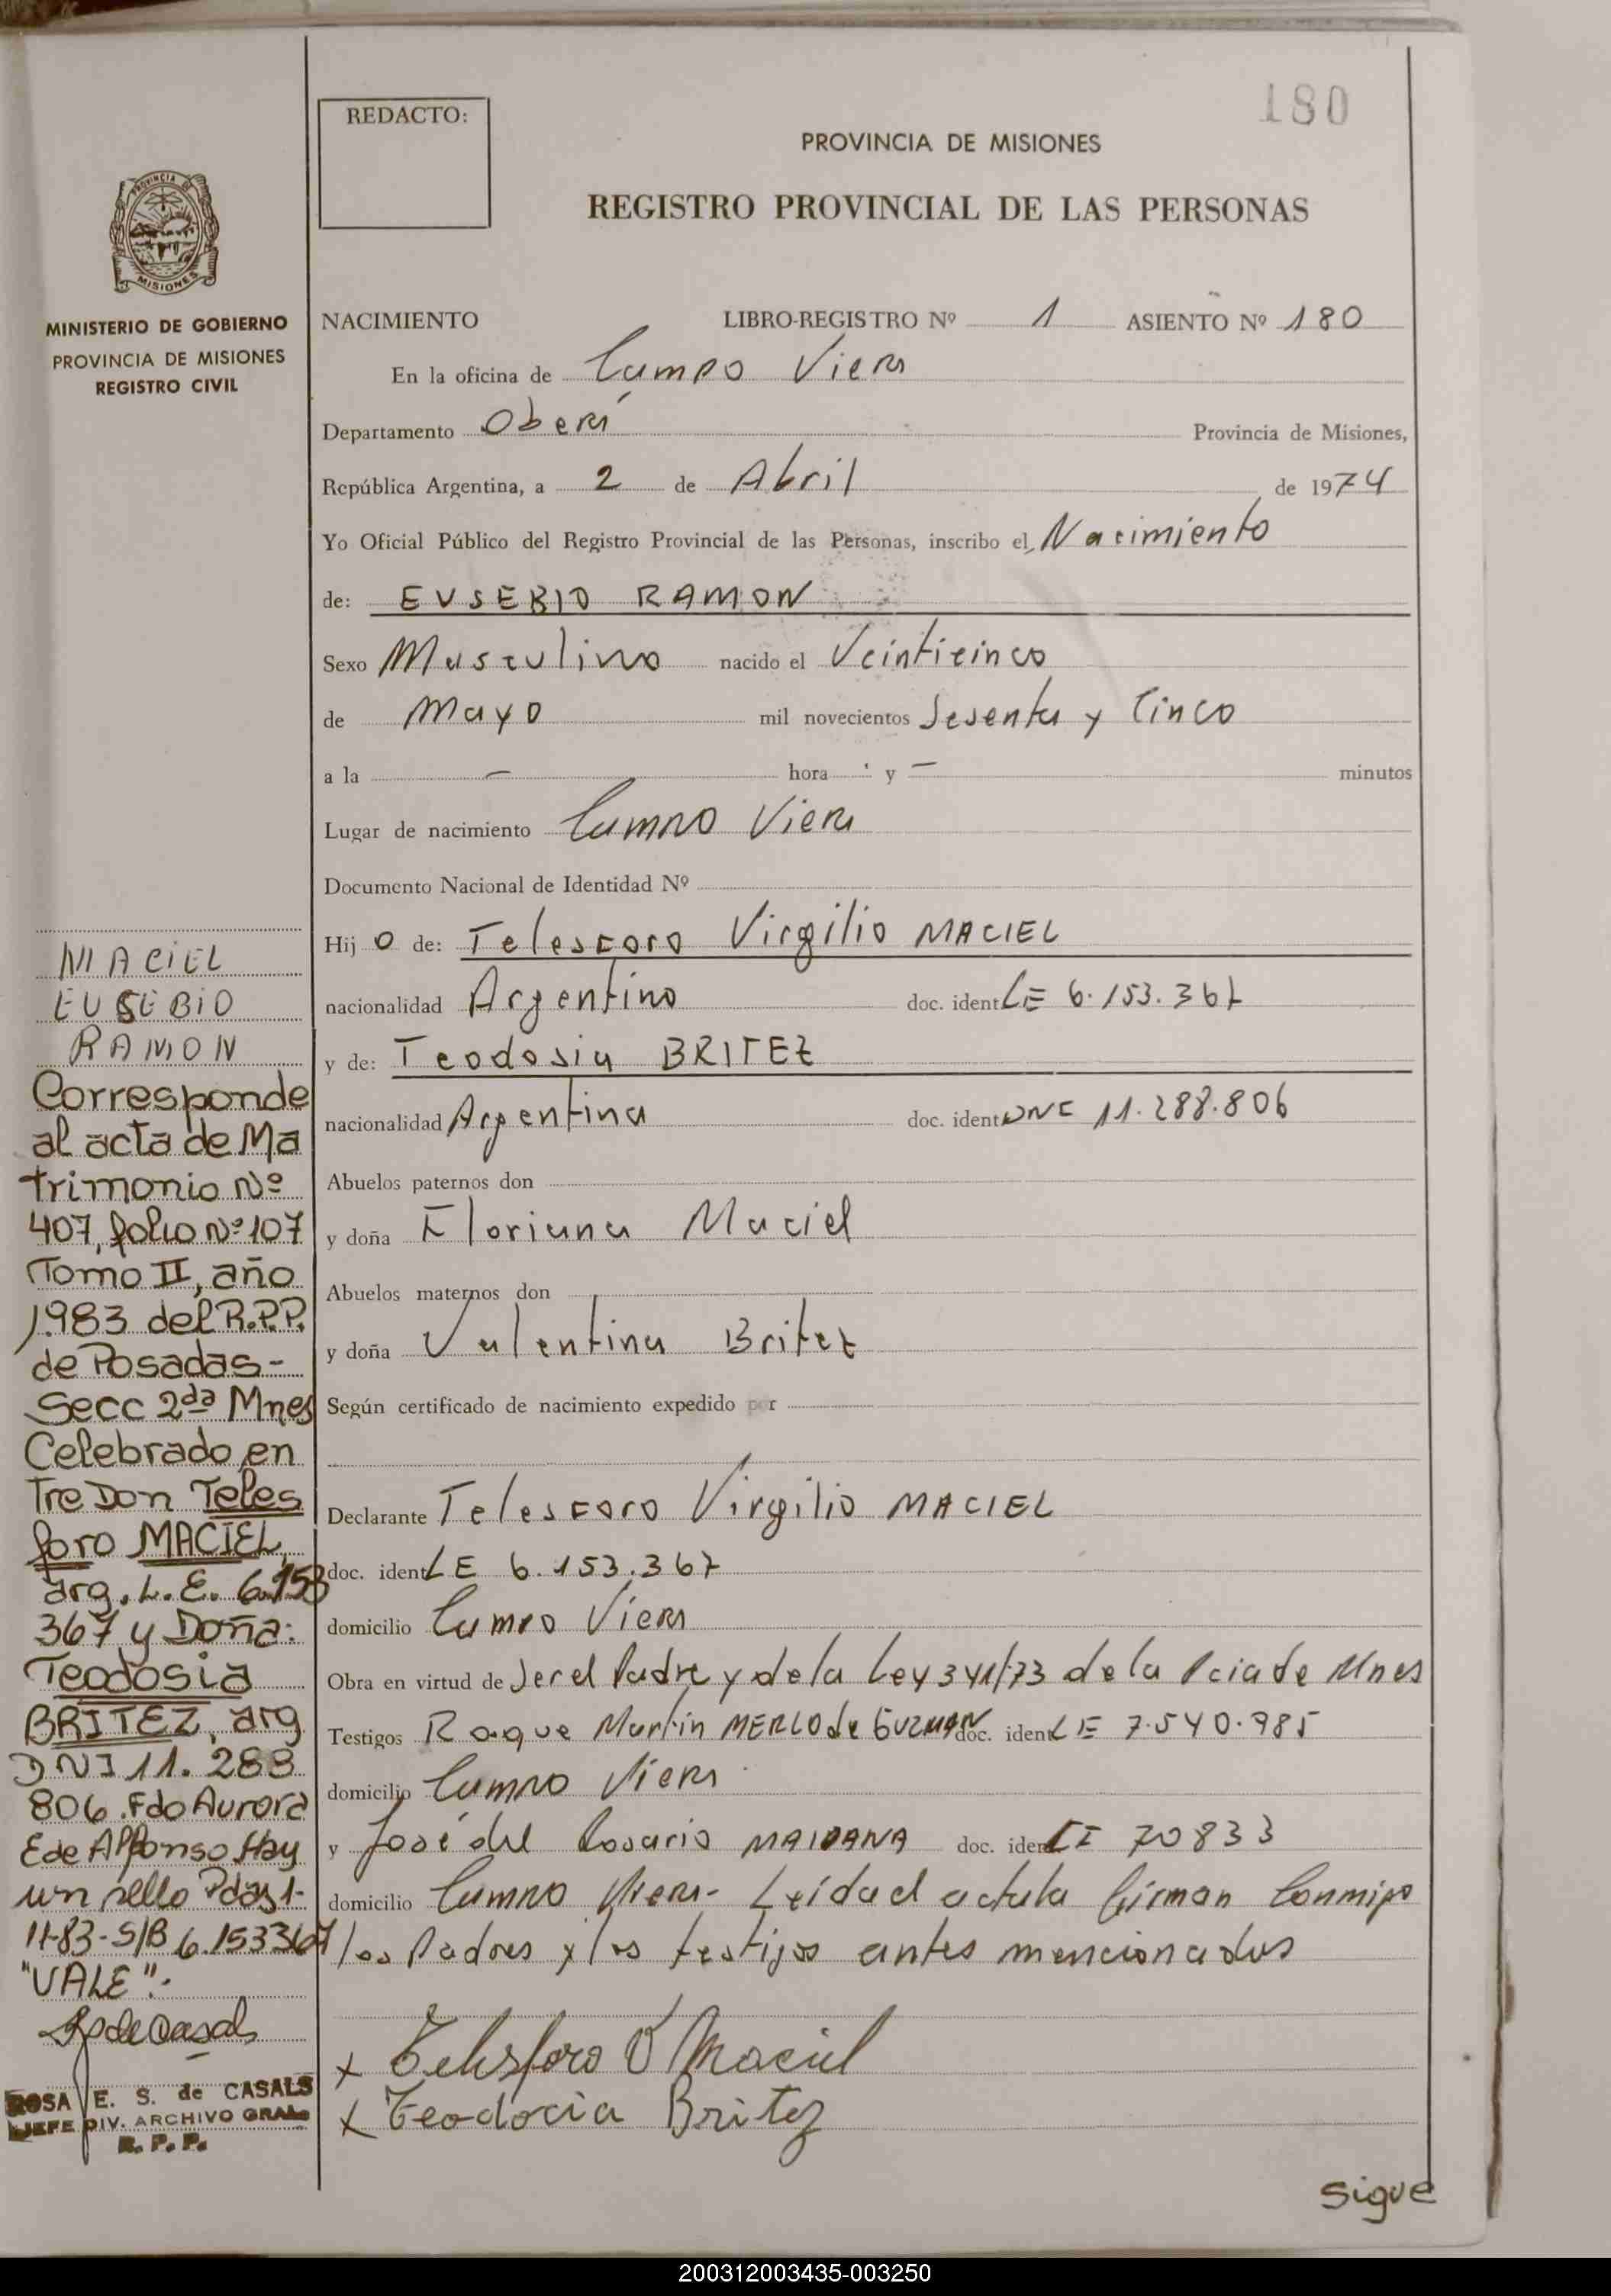 180
REDACTO:
PROVINCIA DE MISIONES
REGISTRO PROVINCIAL DE LAS PERSONAS
PROVINCIA DE
MISIONES
MINISTERIO DE GOBIERNO
PROVINCIA DE MISIONES
REGISTRO CIVIL
NACIMIENTO LIBRO-REGISTRO Nº 1 ASIENTO Nº 180
En la oficina de Campo Viera
Departamento Oberá Provincia de Misiones,
República Argentina, a 2 de Abril de 1974
Yo Oficial Público del Registro Provincial de las Personas, inscribo el Nacimiento
de: EUSEBIO RAMON
Sexo Masculino nacido el Veinticinco
de Mayo mil novecientos Sesenta y Cinco
a la — hora y — minutos
Lugar de nacimiento Campo Viera
Documento Nacional de Identidad Nº
Hij o de: Telesforo Virgilio MACIEL
nacionalidad Argentino doc. ident LE 6.153.367
y de: Teodosia BRITEZ
nacionalidad Argentina doc. ident DNI 11.288.806
Abuelos paternos don
y doña Floriana Maciel
Abuelos maternos don
y doña Valentina Britez
Según certificado de nacimiento expedido por
Declarante Telesforo Virgilio MACIEL
doc. ident LE 6.153.367
domicilio Campo Viera
Obra en virtud de Ser el Padre y de la Ley 341/73 de la Pcia de Mnes
Testigos Roque Martín MERLO de GUZMAN doc. ident LE 7.540.985
domicilio Campo Viera
y José del Rosario MAIDANA doc. ident CI 70833
domicilio Campo Viera- Leída el acta la firman Conmigo
los Padres y los testigos antes mencionados
x Telesforo V Maciel
x Teodocia Britez
Sigue
MACIEL
EUSEBIO
RAMON
Corresponde
al acta de Ma
trimonio Nº
407, folio Nº 107
Tomo II, año
1.983 del R.P.P.
de Posadas-
Secc 2da Mnes
Celebrado en
Tre Don Teles
foro MACIEL,
arg. L.E. 6.153
367 y Doña:
Teodosia
BRITEZ, arg
DNI 11.288
806. Fdo Aurora
E de Alfonso Hay
un sello Pdas 1-
11-83-S/B 6.153367
"VALE".
ROSA E. S. de CASALS
JEFE DIV. ARCHIVO GRAL
R. P. P.
200312003435-003250